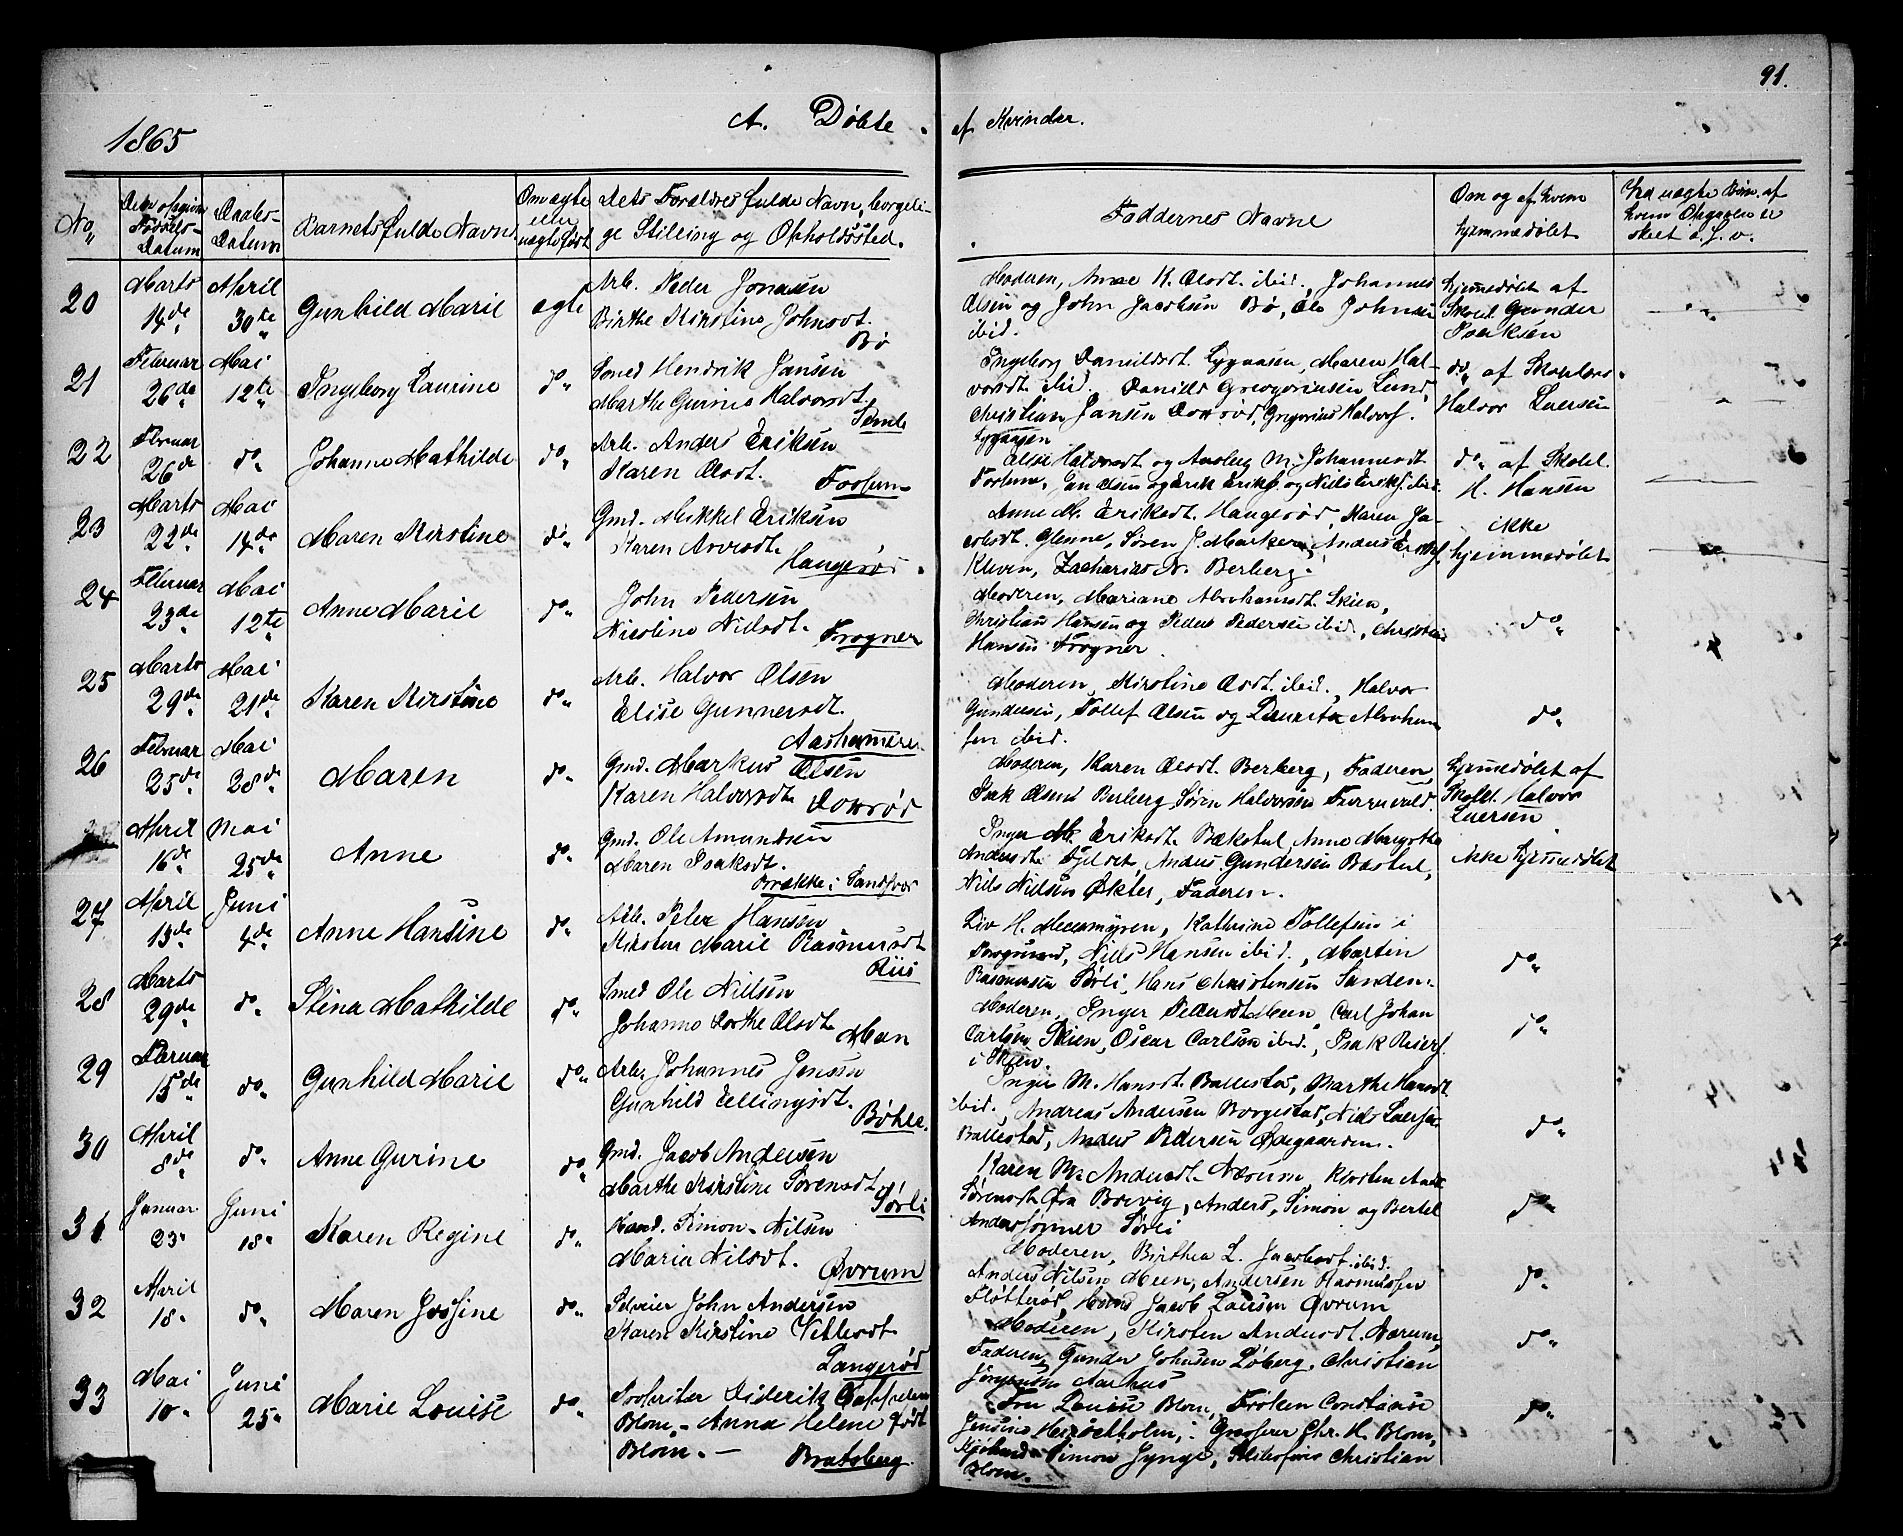 91.
1865
A. Døbte
af Kvinder.
No
Den opgivne Fødsels-Datum
Daabs-Datum
Barnets fulde Navn
Om ægte eller uægte født
Dets Forældres fulde Navn, borgelige Stilling og Opholdssted.
Faddernes Navne
Om og af hvem hjemmedøbt
Ved uægte Børn, af hvem Opgaven er skeet o. s. v.
20
Marts 14de
April 30te
Gunhild Marie
ægte
Arb. Peder Jonasen
Birthe Kirstine Johnsdt.
Bø
Moderen, Anne K. Olsdt. ibid., Johannes
Olsen og John Jacobsen Bø, Ole Johnsen
ibid.
hjemmedøbt af
Skolel. Gunder
Isaksen
21
Februar 26de
Mai 12te
Ingeborg Laurine
do
Smed Hendrik Jansen
Marthe Gurine Halvorsdt.
Semb
Ingeborg Danielsdt. Lygaasen, Maren Hal-
vorsdt. ibid. Daniel Gregoriusen Lund,
Christian Jansen, Gregorius Halvors.
Lygaasen
do af Skolelær.
Halvor Luersen
22
Februar 26de
do
Johanne Mathilde
do
Arb. Anders Eriksen
Karen Olsdt.
Fossum
Else Halvorsdt. og Aasberg M. Johannesdt.
Fossum, Jan Olsen og Erik Eriks. og Niels Eriks. ibid.
do af Skolel.
H. Hansen
23
Marts 22de
Mai 14de
Maren Kirstine
do
Gmd. Mikkel Eriksen
Karen Aavesdt.
Haugerød
Anne M. Eriksdt. Haugerød, Karen Ja-
cobsdt. Glenne, Søren J., Anders Eriks.
Kleven, Zacharias N. Berberg.
ikke
hjemmedøbt
24
Februar 23de
Mai 12te
Anne Marie
do
John Pedersen
Nicoline Nilsdt.
Frogner
Moderen, Mariane Abrahamsdt. Skien,
Christian Hansen og Peder Pedersen ibid, Christian
Hansen Frogner.
do
25
Marts 29de
Mai 21de
Karen Kirstine
do
Arb. Halvor Olsen
Elise Gunnersdt.
Aashammeren
Moderen, Kirstine Olsdt. ibid., Halvor
Gundersen, Tollef Olsen og Lauritz Abraham-
sen ibid.
do
26
Februar 25de
Mai 28de
Maren
do
Gmd. Markus Olsen
Karen Halvorsdt.
Moderen, Karen Olsdt. Berberg, Faderen,
Isak Olsen Berberg, Søren Halvorsen
hjemmedøbt af
Skolel. Halvor
Luersen
April 16de
Mai 25de
Anne
do
Gmd. Ole Amundsen
Maren Isaksdt.
Brække i Sandsvær
Inger M. Eriksdt. Bækstul, Anne Margrethe
Andersdt., Anders Gundersen Bastul,
Niels Nielsen Økter, Faderen.
ikke hjemmedøbt
27
April 13de
Juni 4de
Anne Hansine
do
Arb. Peter Hanssen
Kirsten Marie Rasmusdt.
Riis
Liv H. Meenmyren, Kathrine Tollefsen i
Porsgrund, Niels Hansen ibid., Martin
Rasmussen Sørli, Hans Christensen Sanden.
do
28
Marts 29de
do
Stina Mathilde
do
Smed Ole Nilsen
Johanne Dorthe Olsdt.
Mæn
Moderen, Inger Pedersdt. Meen, Carl Johan
Carlsen Skien, Oscar Carlsen ibid., Isak Reiers.
i Skien.
do
29
Februar 15de
do
Gunhild Marie
do
Arb. Johannes Jensen
Gunhild Ellingsdt.
Bøhle.
Inger M. Hansdt. Ballestad, Marthe Hansdt.
ibid., Andreas Andersen Borgestad, Niels Luersen
Ballestad, Anders Pedersen Ødegaarden.
do
30
April 8de
do
Anne Gurine
do
Gmd. Jacob Andersen
Marthe Kirstine Sørensdt.
Sørli
Karen M. Andersdt. Nærum, Kirsten
Sørensdt. fra Brevig, Anders, Simon og Bertel
Anderssønner Sørli
do
31
Januar 23
Juni 18
Karen Regine
do
Simon Nilsen
Maria Nilsdt.
Øvrum
Moderen, Birthea L. Jacobsdt. ibid.
Anders Nilsen Meen, Andersen Rasmussen
Fløtterød, Jacob Larsen Øvrum
do
32
April 18
do
Maren Josine
do
Selveier John Andersen
Karen Kirstine
Langerød
Moderen, Kirsten Andersdt. Nærum,
Faderen, Gunder Johnsen Løberg, Christian
Jørgensen Aarhus
do
33
Mai 10
Juni 25
Marie Louise
do
Diderik Cappelen
Blom, – Anna Helene født
Blom. –
Bratsberg
Fru Louise Blom, Frøken Constance
Jensine Hirschholm, Grosserer Chr. H. Blom,
Simon Jynge, Christian
Blom.
do